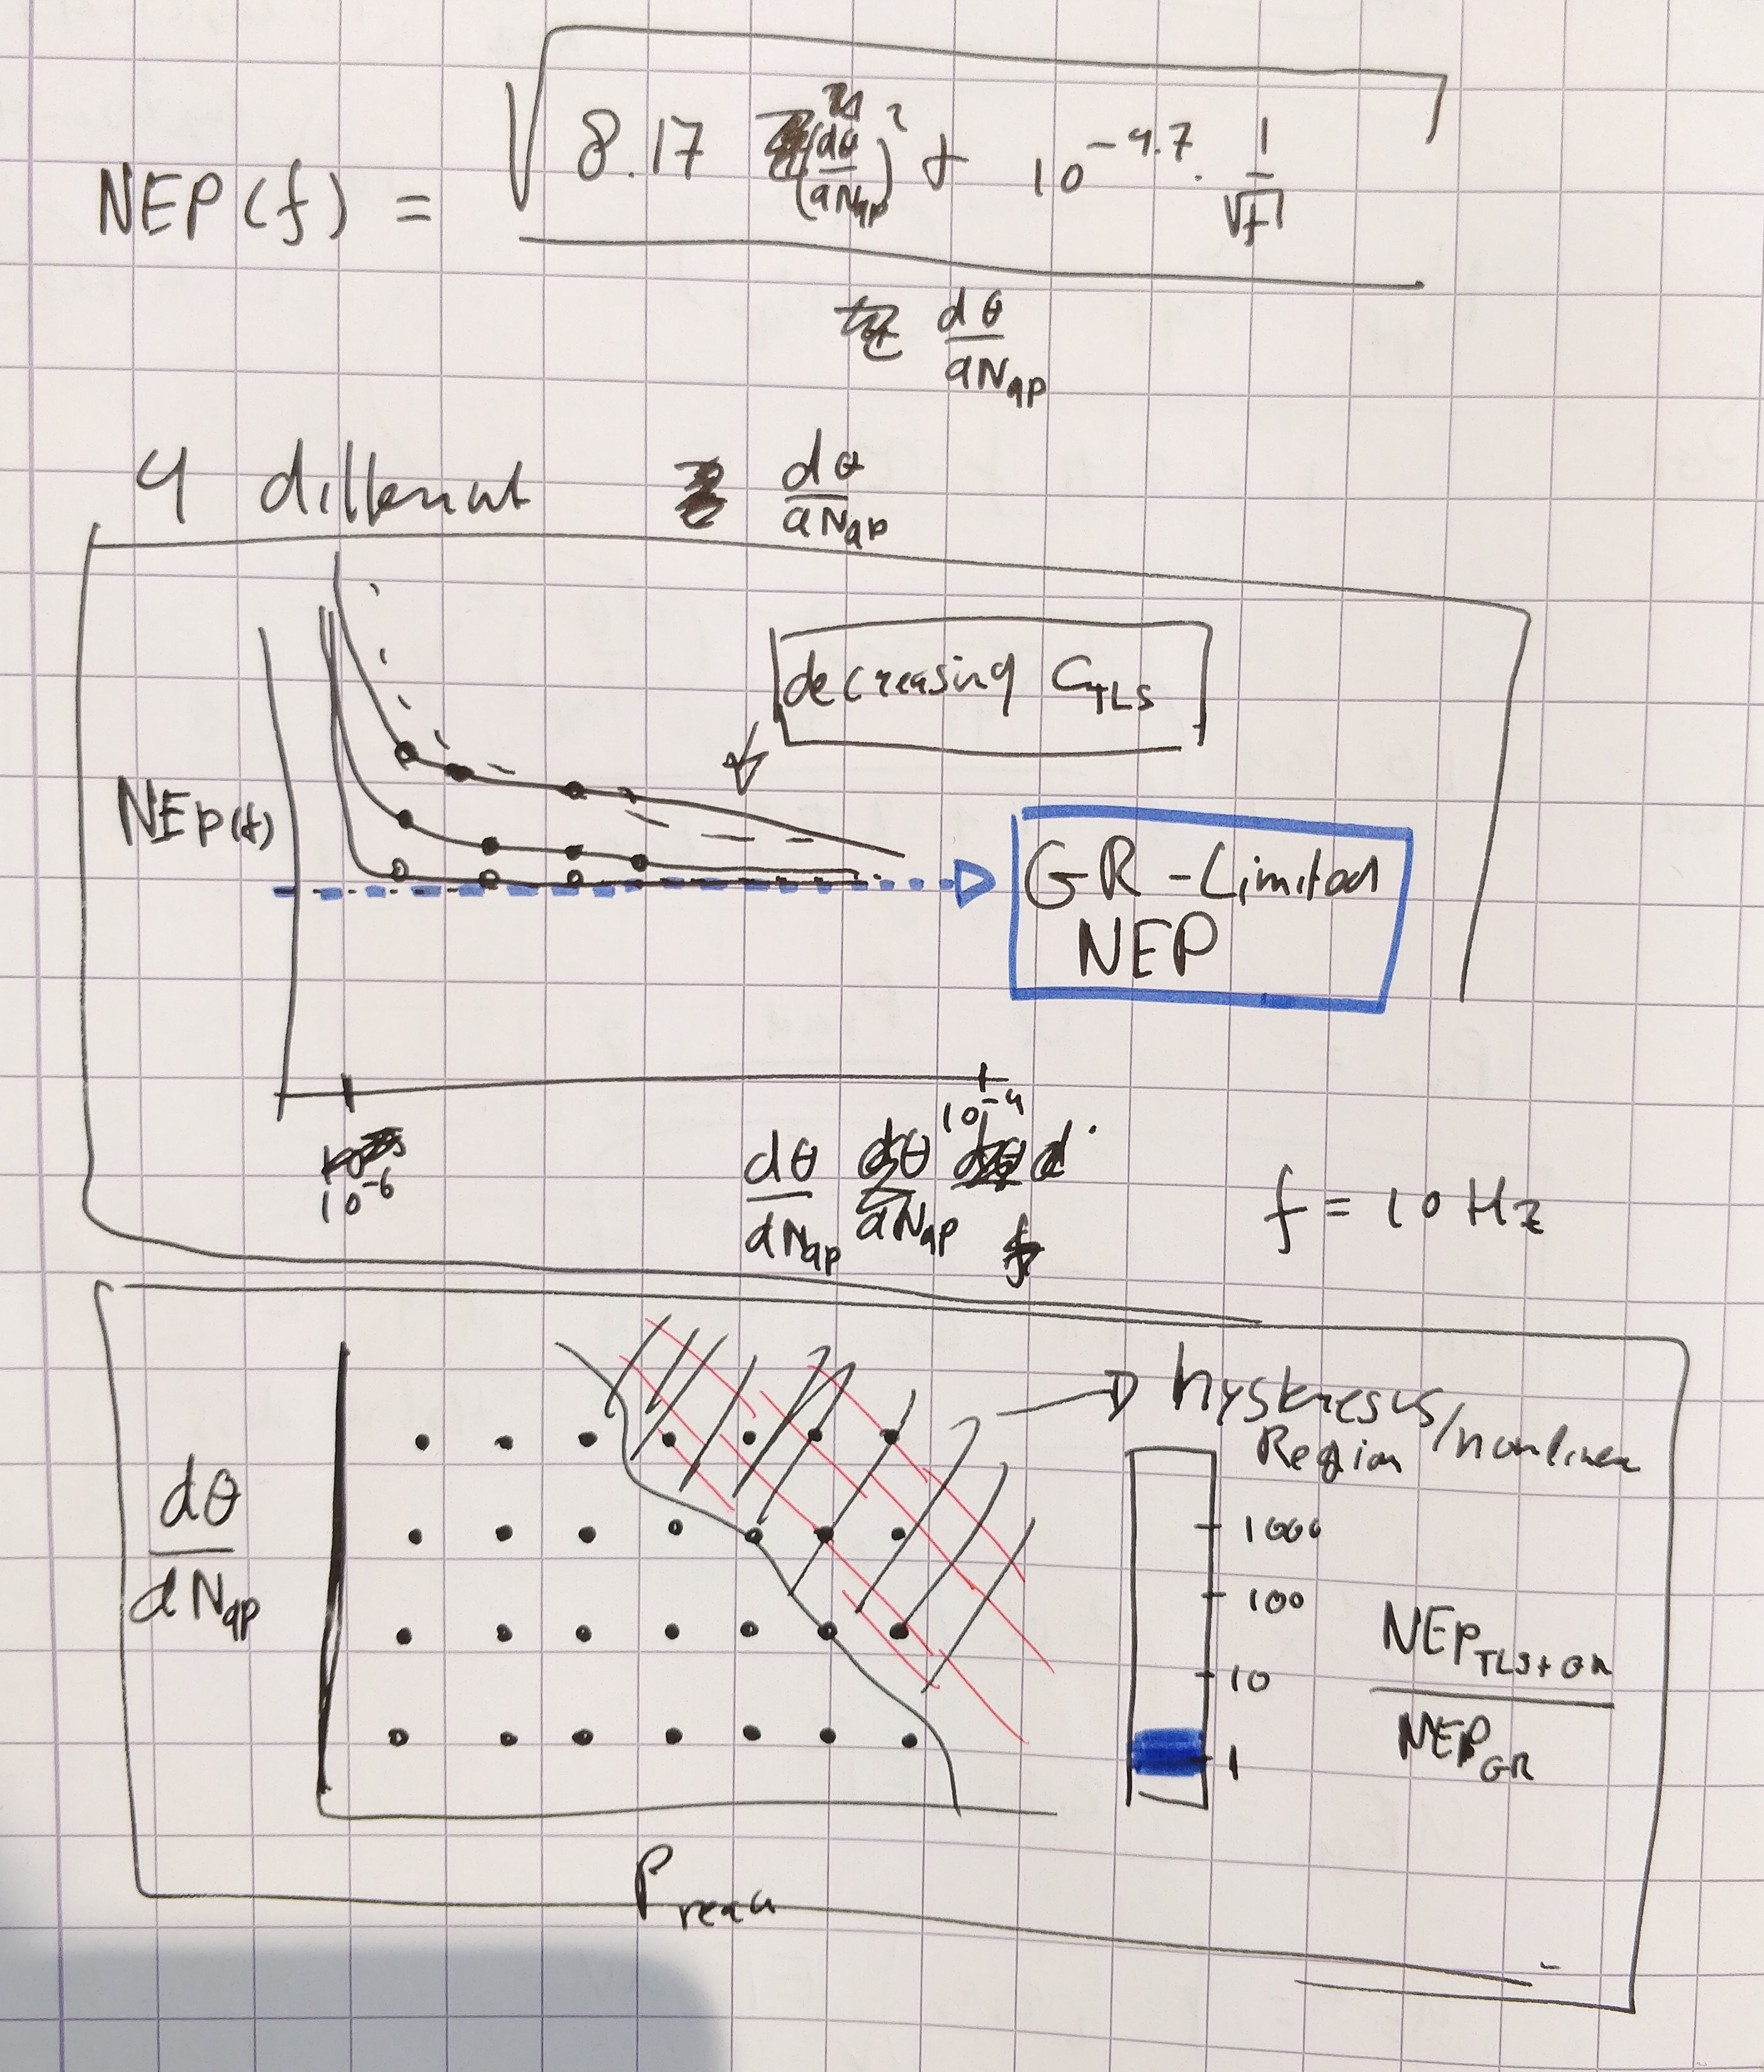 NEP(f) = √ 8.17 (dθ/dNqp)² + 10^-9.7 · 1/√f
dθ/dNqp
4 different dθ/dNqp
decreasing C_TLS
NEP(f)
GR-Limited
NEP
10^-6
10^-4
dθ/dNqp dθ/dNqp
f = 10 Hz
hysteresis/nonlinear
Region
1000
dθ/dNqp
100
NEP_TLS+GR / NEP_GR
10
1
P_read